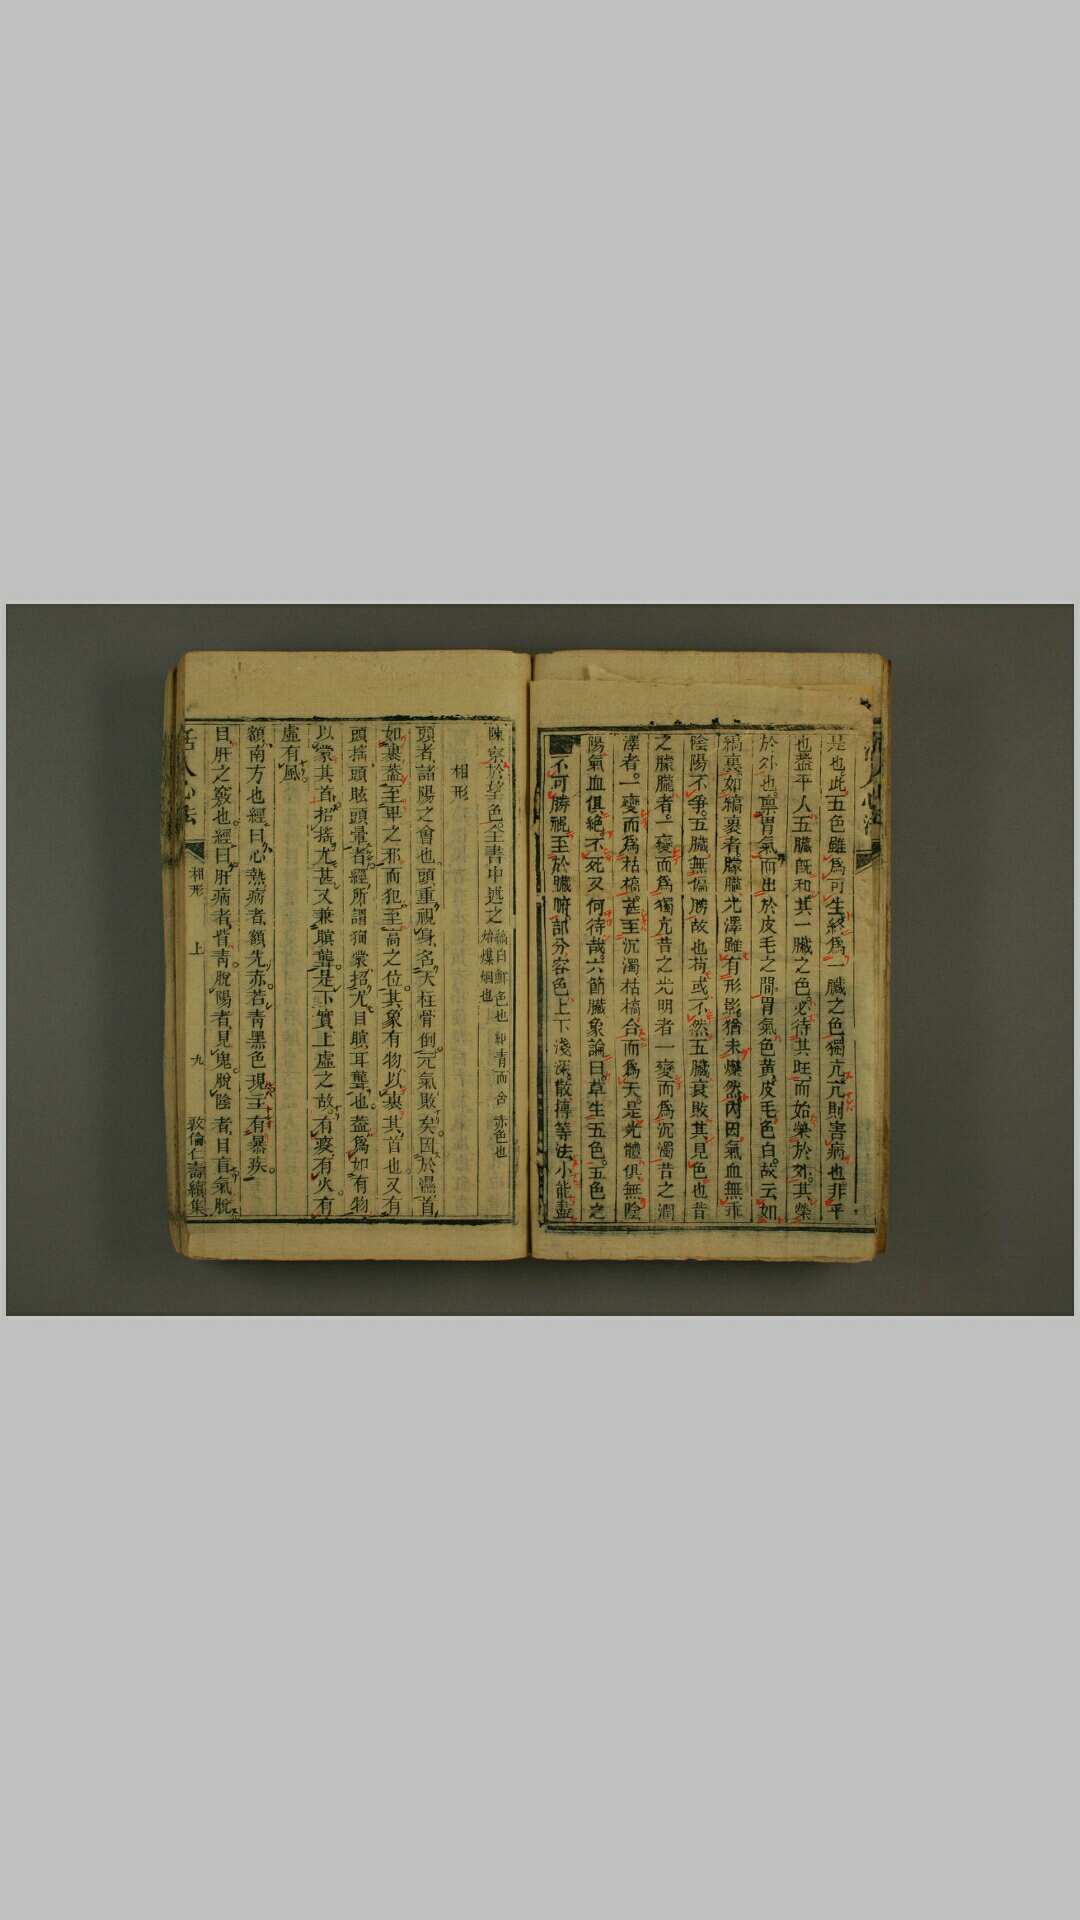 是也此五色雖爲可生終爲一臟之色獨亢亢則害病也非平
也蓋平人五臟旣和其一臟之色必待其旺而始榮於外其榮
於外也禀胃氣而出於皮毛之間胃氣色黃皮毛色白故云如
縞裹如縞裹者朦朧光澤雖有形影猶未爍然內因氣血無乖
陰陽不爭五臟無偏勝故也苟或不然五臟衰敗其見色也昔
之朦朧者一變而爲獨亢昔之光明者一變而爲沉濁昔之潤
澤者一變而爲枯槁甚至沉濁枯槁合而爲夭是光體俱無陰
陽氣血俱絕不死又何待哉六節臟象論曰草生五色五色之
不可勝視至於臟腑部分容色上下淺深散摶等法小能盡
陳察於望色全書中述之
縞白鮮色也 紺青而含赤色也
炲煤烟也
相形
頭者諸陽之會也頭重視身名天柱骨倒元氣敗矣因於濕首
如裹蓋至卑之邪而犯至高之位其象有物以裹其首也又有
頭搖頭眩頭暈者經所謂徇蒙招尤目瞑耳聾也蓋爲如有物
以蒙其首招搖尤甚又兼瞑聾是下實上虛之故有痰有火有
虛有風
額南方也經曰心熱病者額先赤若青黑色現主有暴疾
目肝之竅也經曰肝病者眥青脫陽者見鬼脫陰者目盲氣脫
活人心法
相形
上
九
敦倫仁壽續集